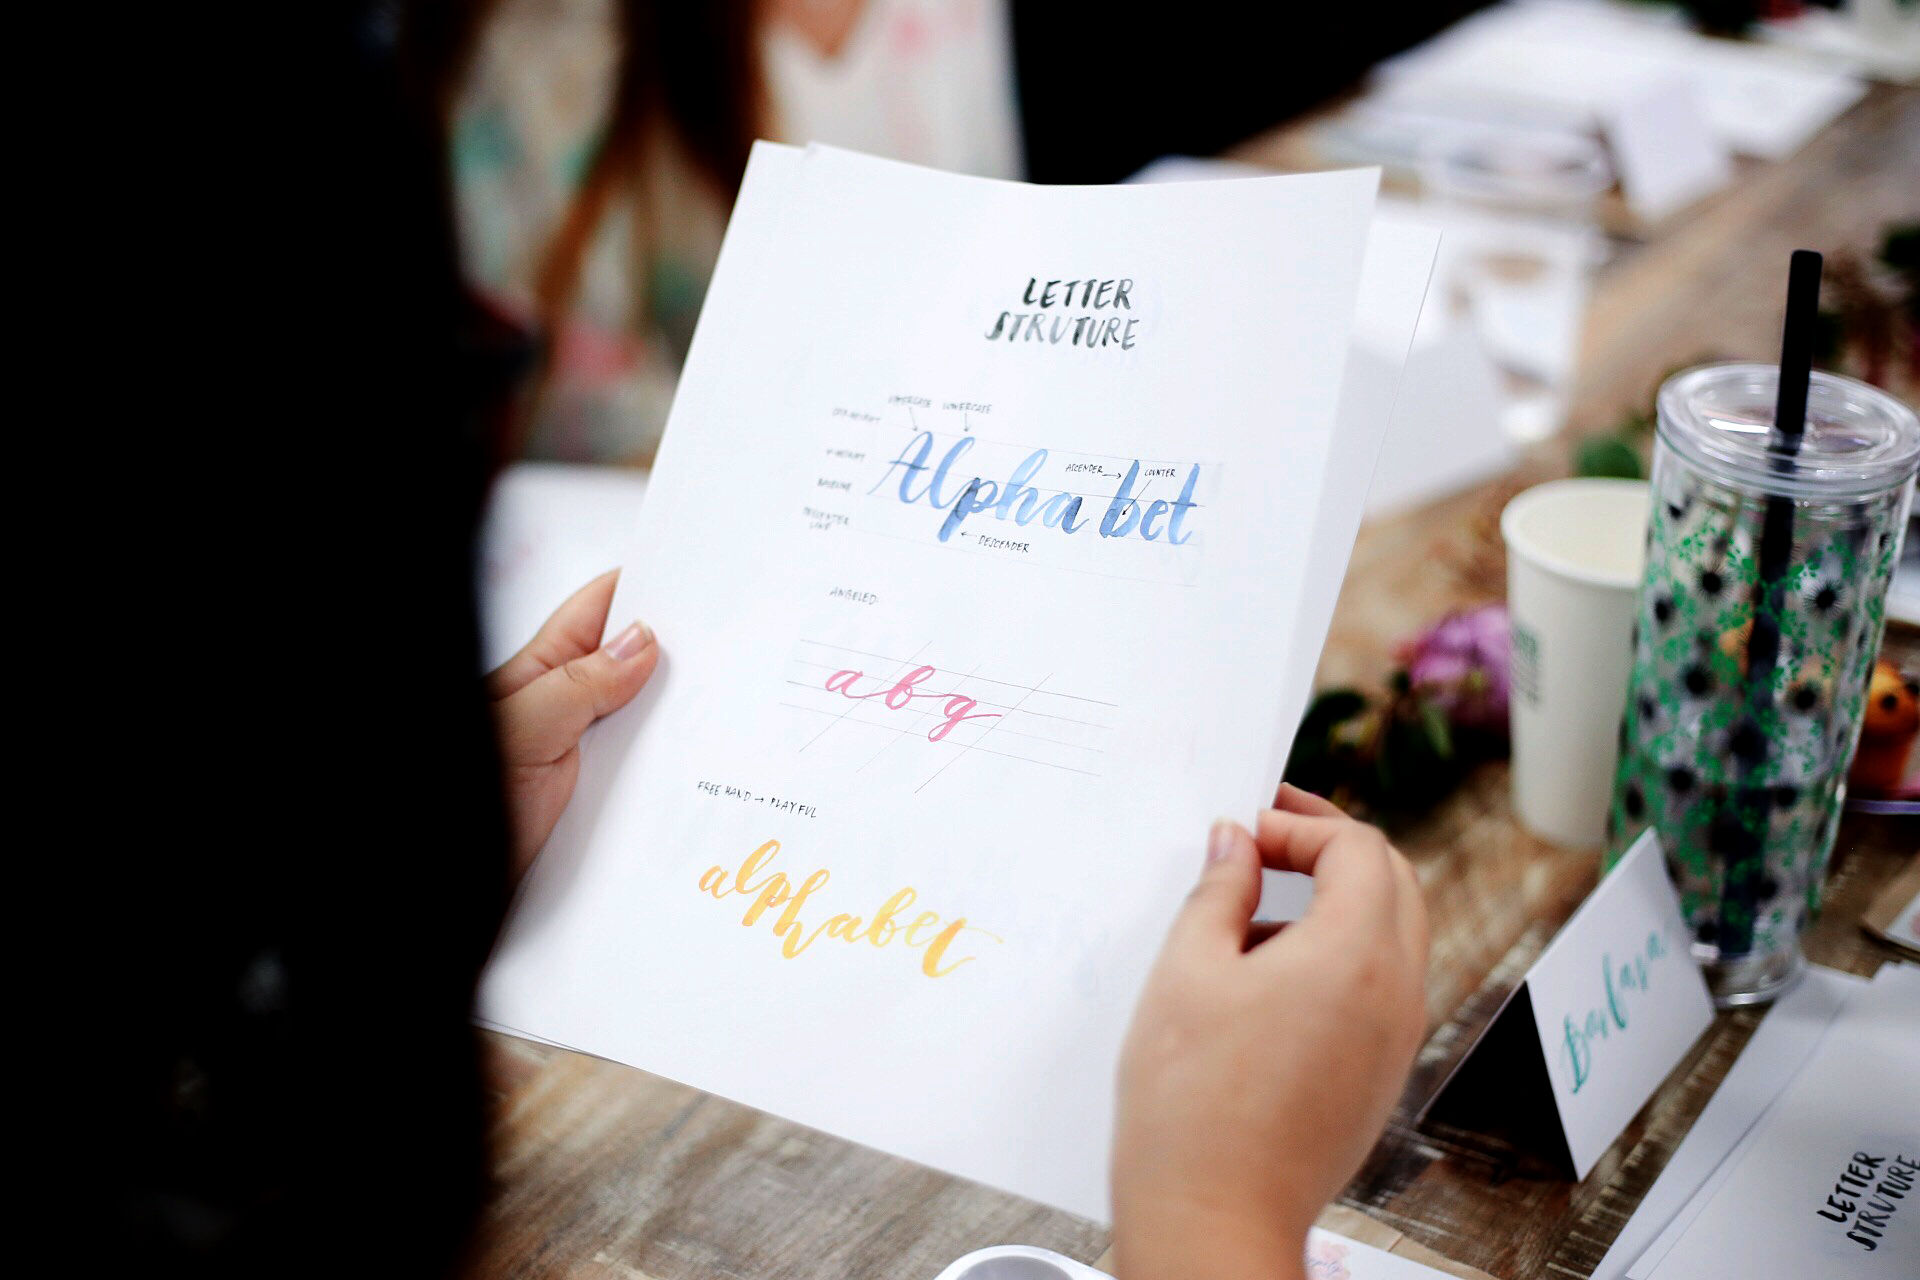 LETTER
STRUTURE
UPPERCASE LOWERCASE
X-HEIGHT
BASELINE
Alphabet
ASCENDER → COUNTER
← DESCENDER
ANGELED:
abg
FREE HAND → PLAYFUL
alphabet
Barbara
LETTER
STRUTURE